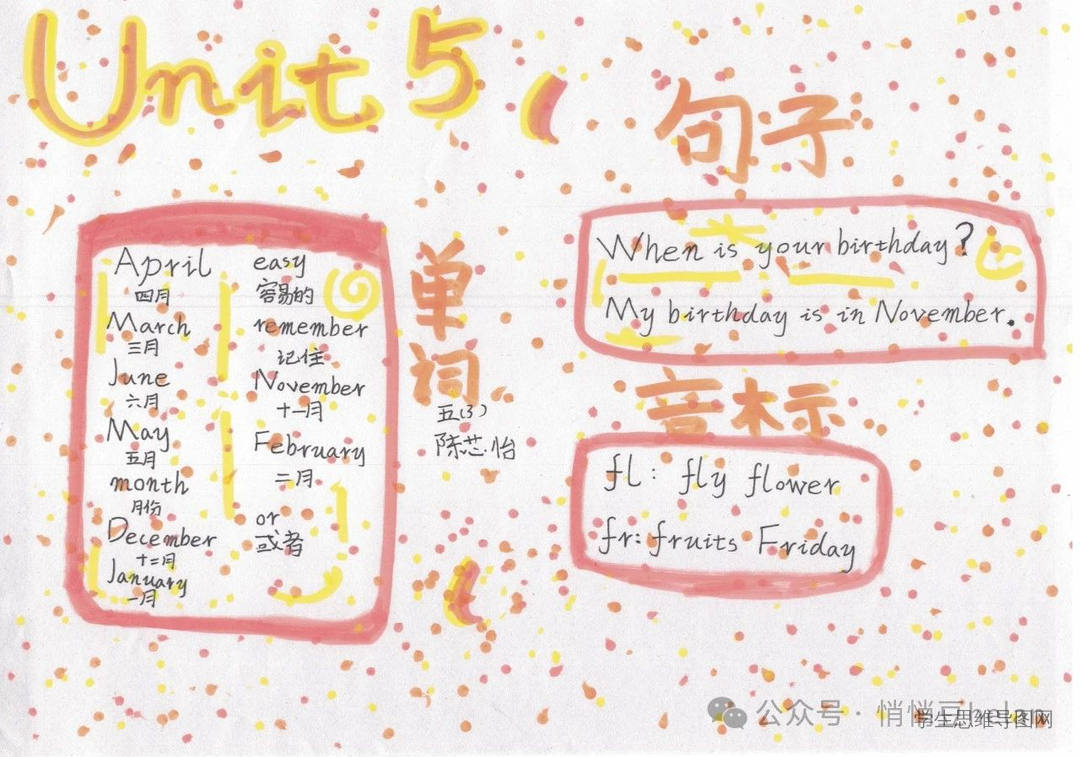 Unit 5
单词
April
四月
March
三月
June
六月
May
五月
month
月份
December
十二月
January
一月
easy
容易的
remember
记住
November
十一月
February
二月
or
或者
五(3)
陈芯怡
句子
When is your birthday?
My birthday is in November.
音标
fl: fly flower
fr: fruits Friday
公众号·悄悄
学生思维导图网